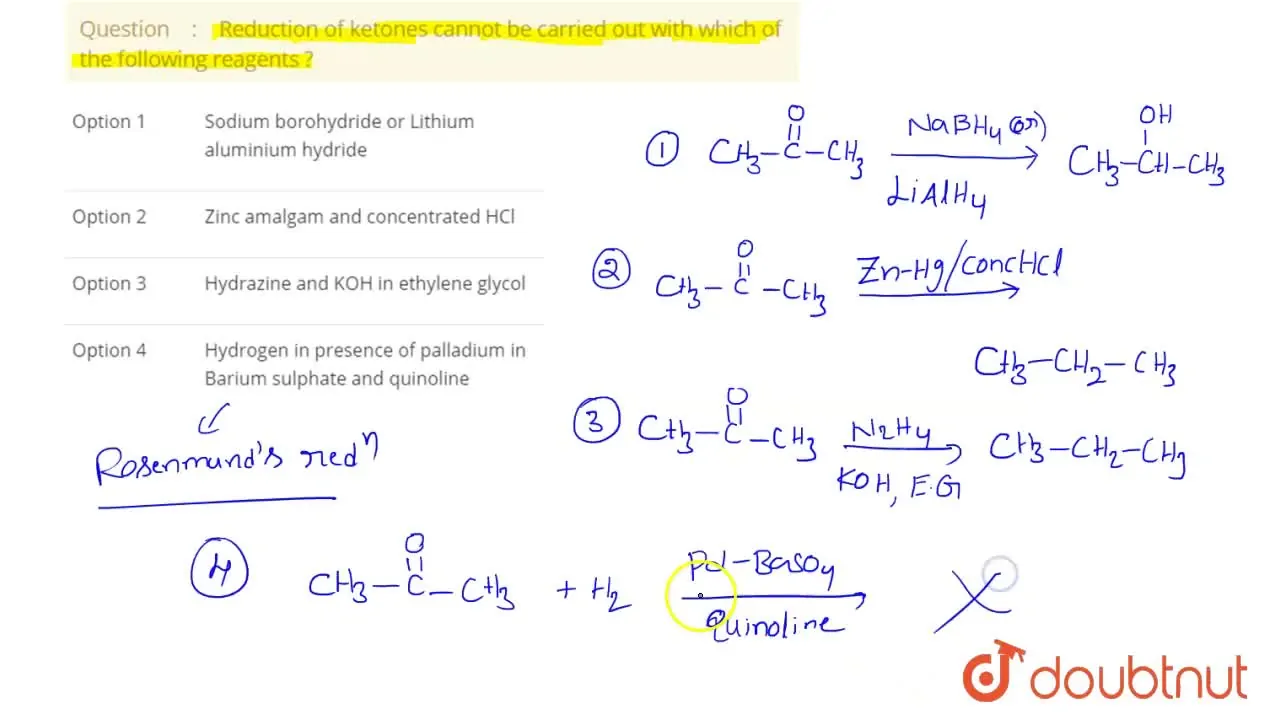 Question : Reduction of ketones cannot be carried out with which of
the following reagents ?
Option 1 Sodium borohydride or Lithium
aluminium hydride
Option 2 Zinc amalgam and concentrated HCl
Option 3 Hydrazine and KOH in ethylene glycol
Option 4 Hydrogen in presence of palladium in
Barium sulphate and quinoline
Rosenmund's redⁿ
O
① CH3-C-CH3 NaBH4 (or)
LiAlH4
OH
CH3-CH-CH3
O
② CH3-C-CH3 Zn-Hg/Conc HCl
CH3-CH2-CH3
O
③ CH3-C-CH3 N2H4
KOH, E.G
CH3-CH2-CH3
O
④ CH3-C-CH3 + H2 Pd-BaSO4
Quinoline
X
doubtnut